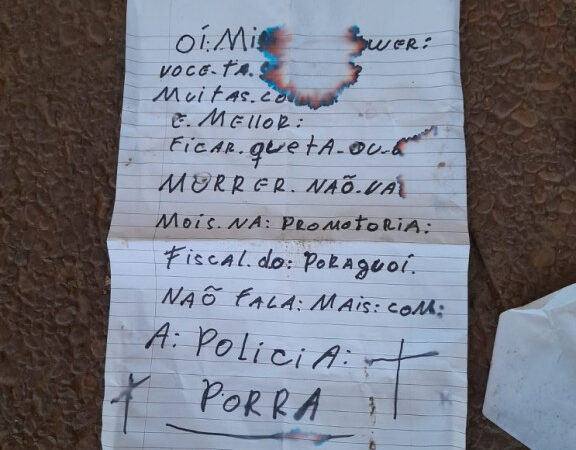 OÍ: Mi WER:
VOCE. TA.
MUITAS. CO
E. MELLOR:
FICAR. QUETA. OU.
MORRER. NAÕ. VA
MAIS. NA: PROMOTORIA:
Fiscal. do: PORAGUOÍ.
NAÕ FALA: MAIS: COM:
A: POLICIA:
PORRA